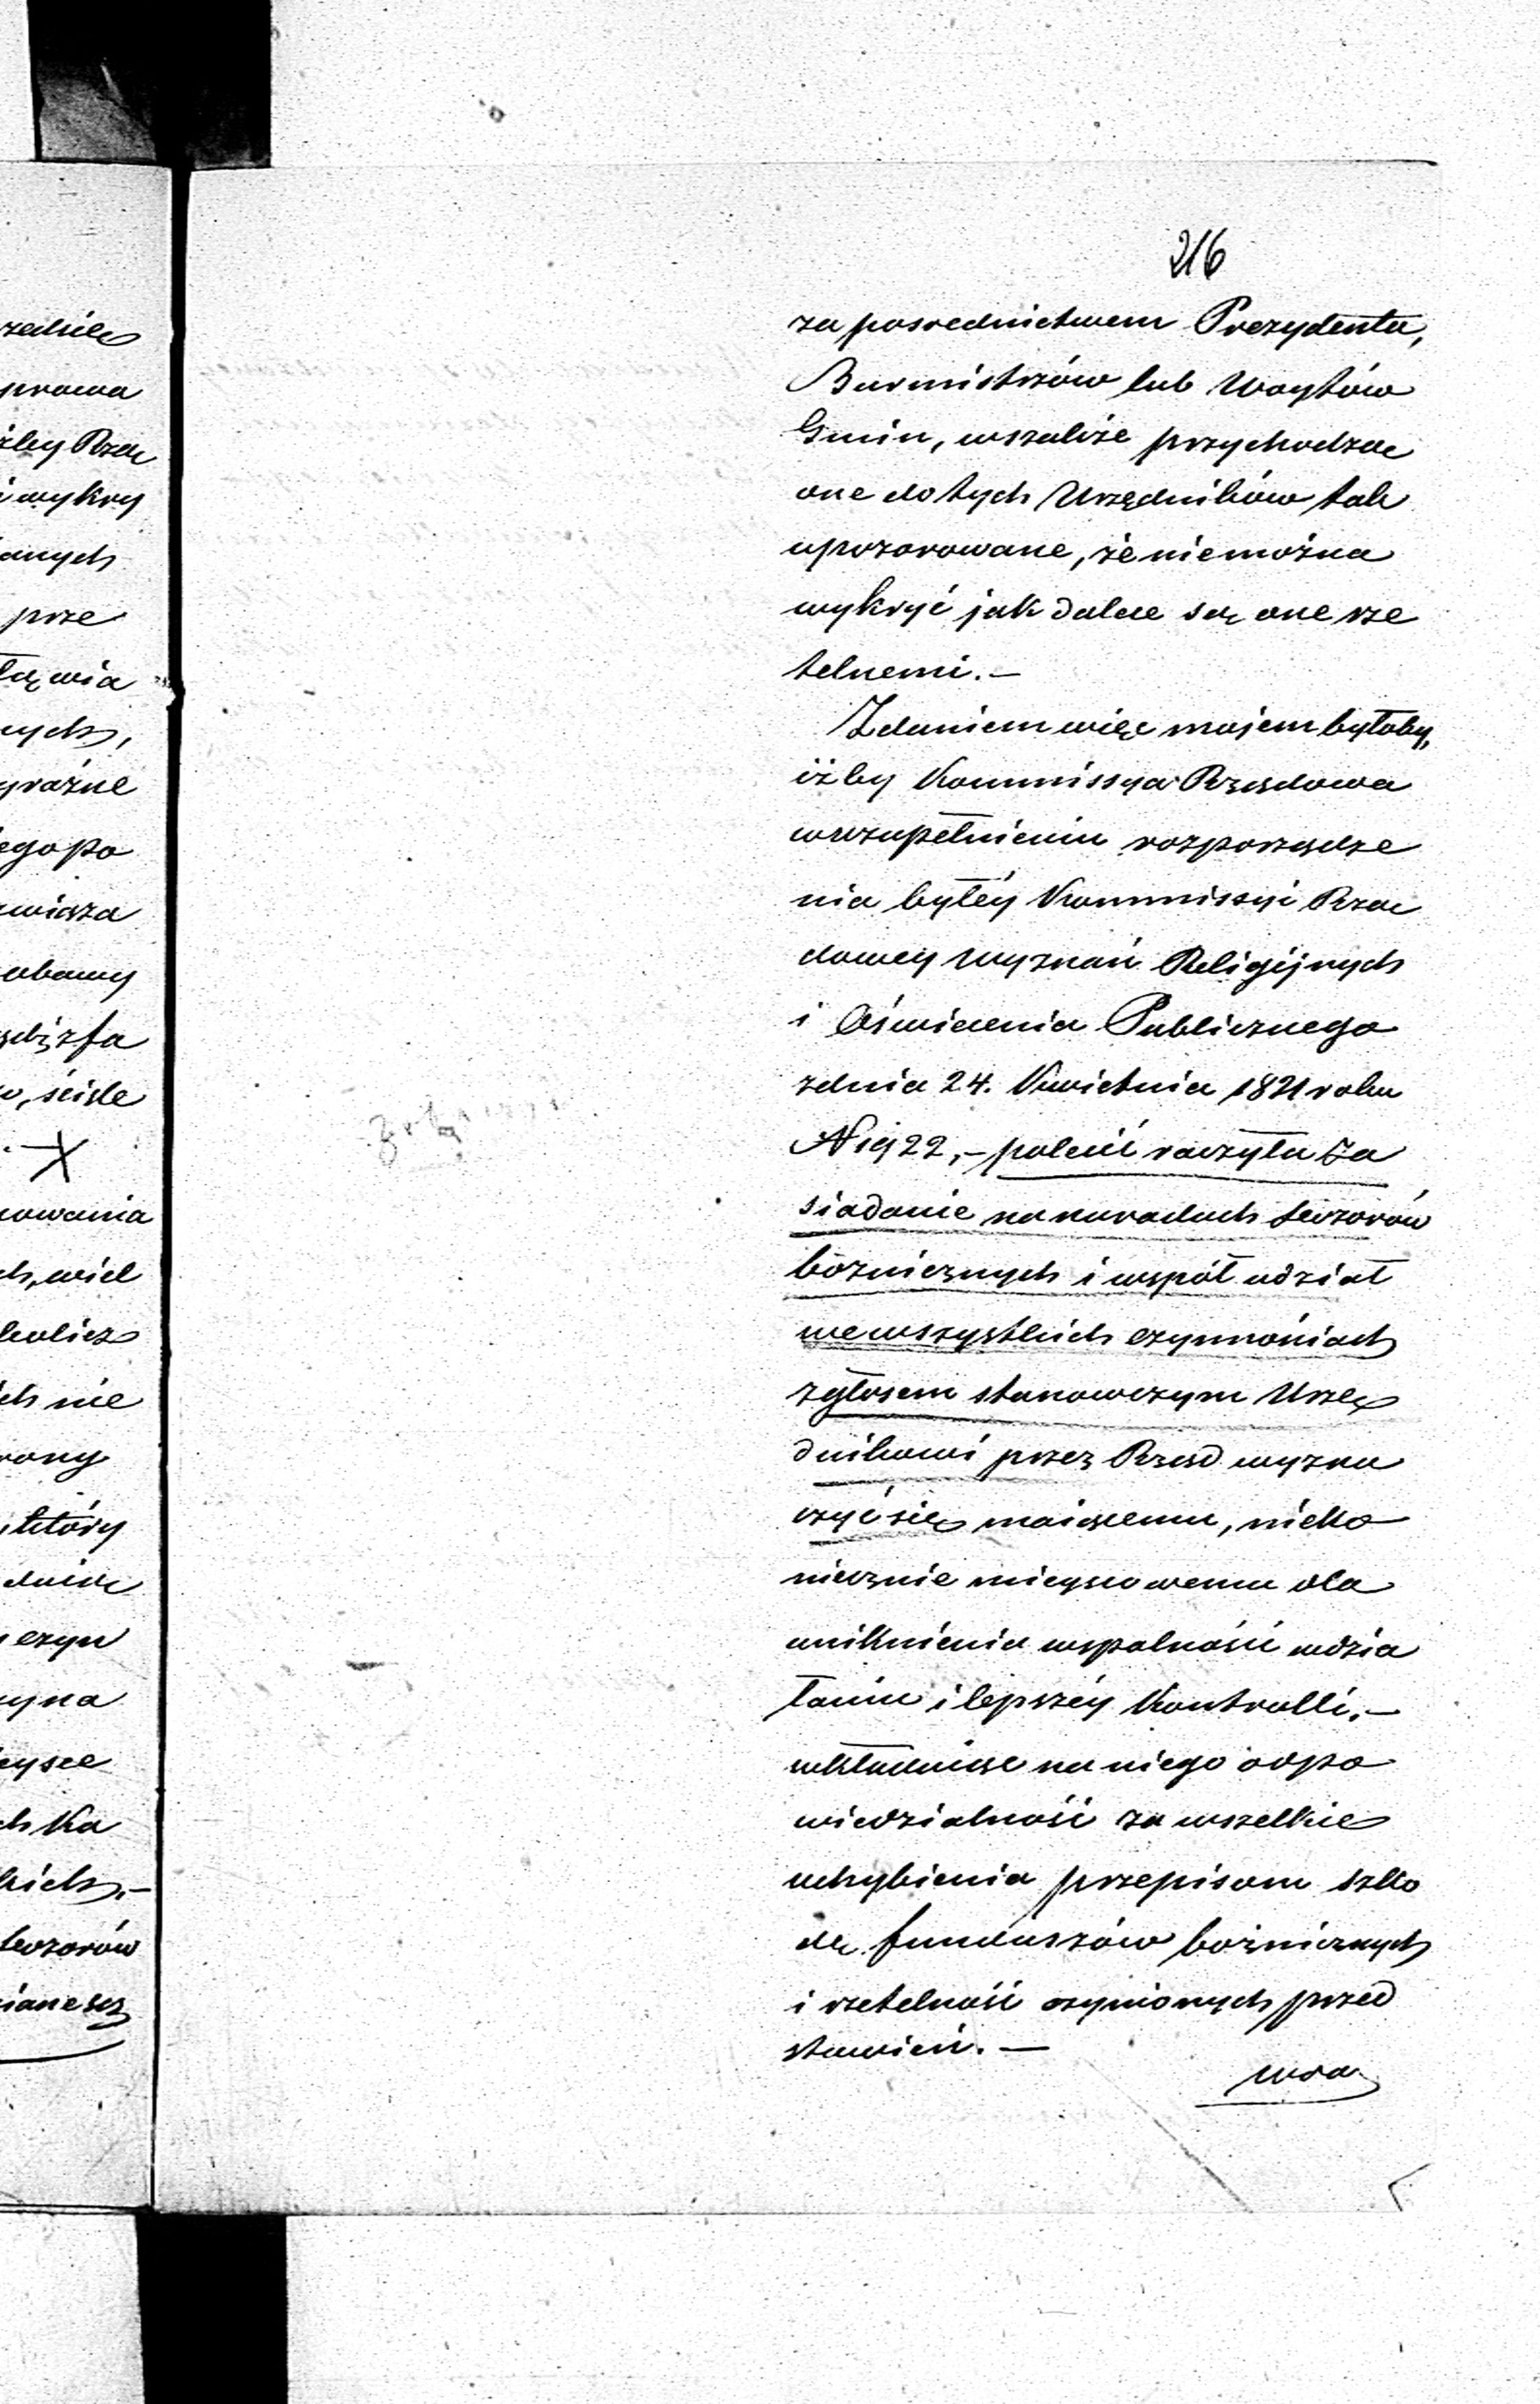 216
za posrednictwem Prezydenta,
Burmistrzów lub Woytów
Gmin, wszakże przychodzą
one do tych Urzędników tak
upozorowane, że niemożna
wykryć jak dalece są one rze
telnemi. —
Zdaniem więc mojem byłoby,
iżby Kommissya Rządowa
w uzupełnieniu rozporządze
nia byłéy Kommissyi Rzą
dowey Wyznań Religijnych
i Oświecenia Publicznego
z dnia 24. Kwietnia 1821 roku
N 1922, – polecić raczyła za
siadanie na naradach dozorów
bożnicznych i współ udział
we wszystkich czynnościach
z głosem stanowczym Urzę
dnikowi przez Rząd wyzna
czyć się maiącemu, nieko
niecznie mieyscowemu dla
uniknienia wspolności w dzia
łaniu i lepszéy Kontrolli. —
wkładając na niego odpo
wiedzialność za wszelkie
uchybienia przepisom szko
dę funduszów bożnicznych
i rzetelność czynionych przed
stawień. —
zedsię
prawa
iżby Rzą
i wykry
anych
prze
tą wia
nych,
yraźne
iego po
związa
obawy
ściśle
X
nowania
ch, wiel
kolicz
ch nie
rony
który
czyn
zyna
ch Ka
kich. —
dozorów